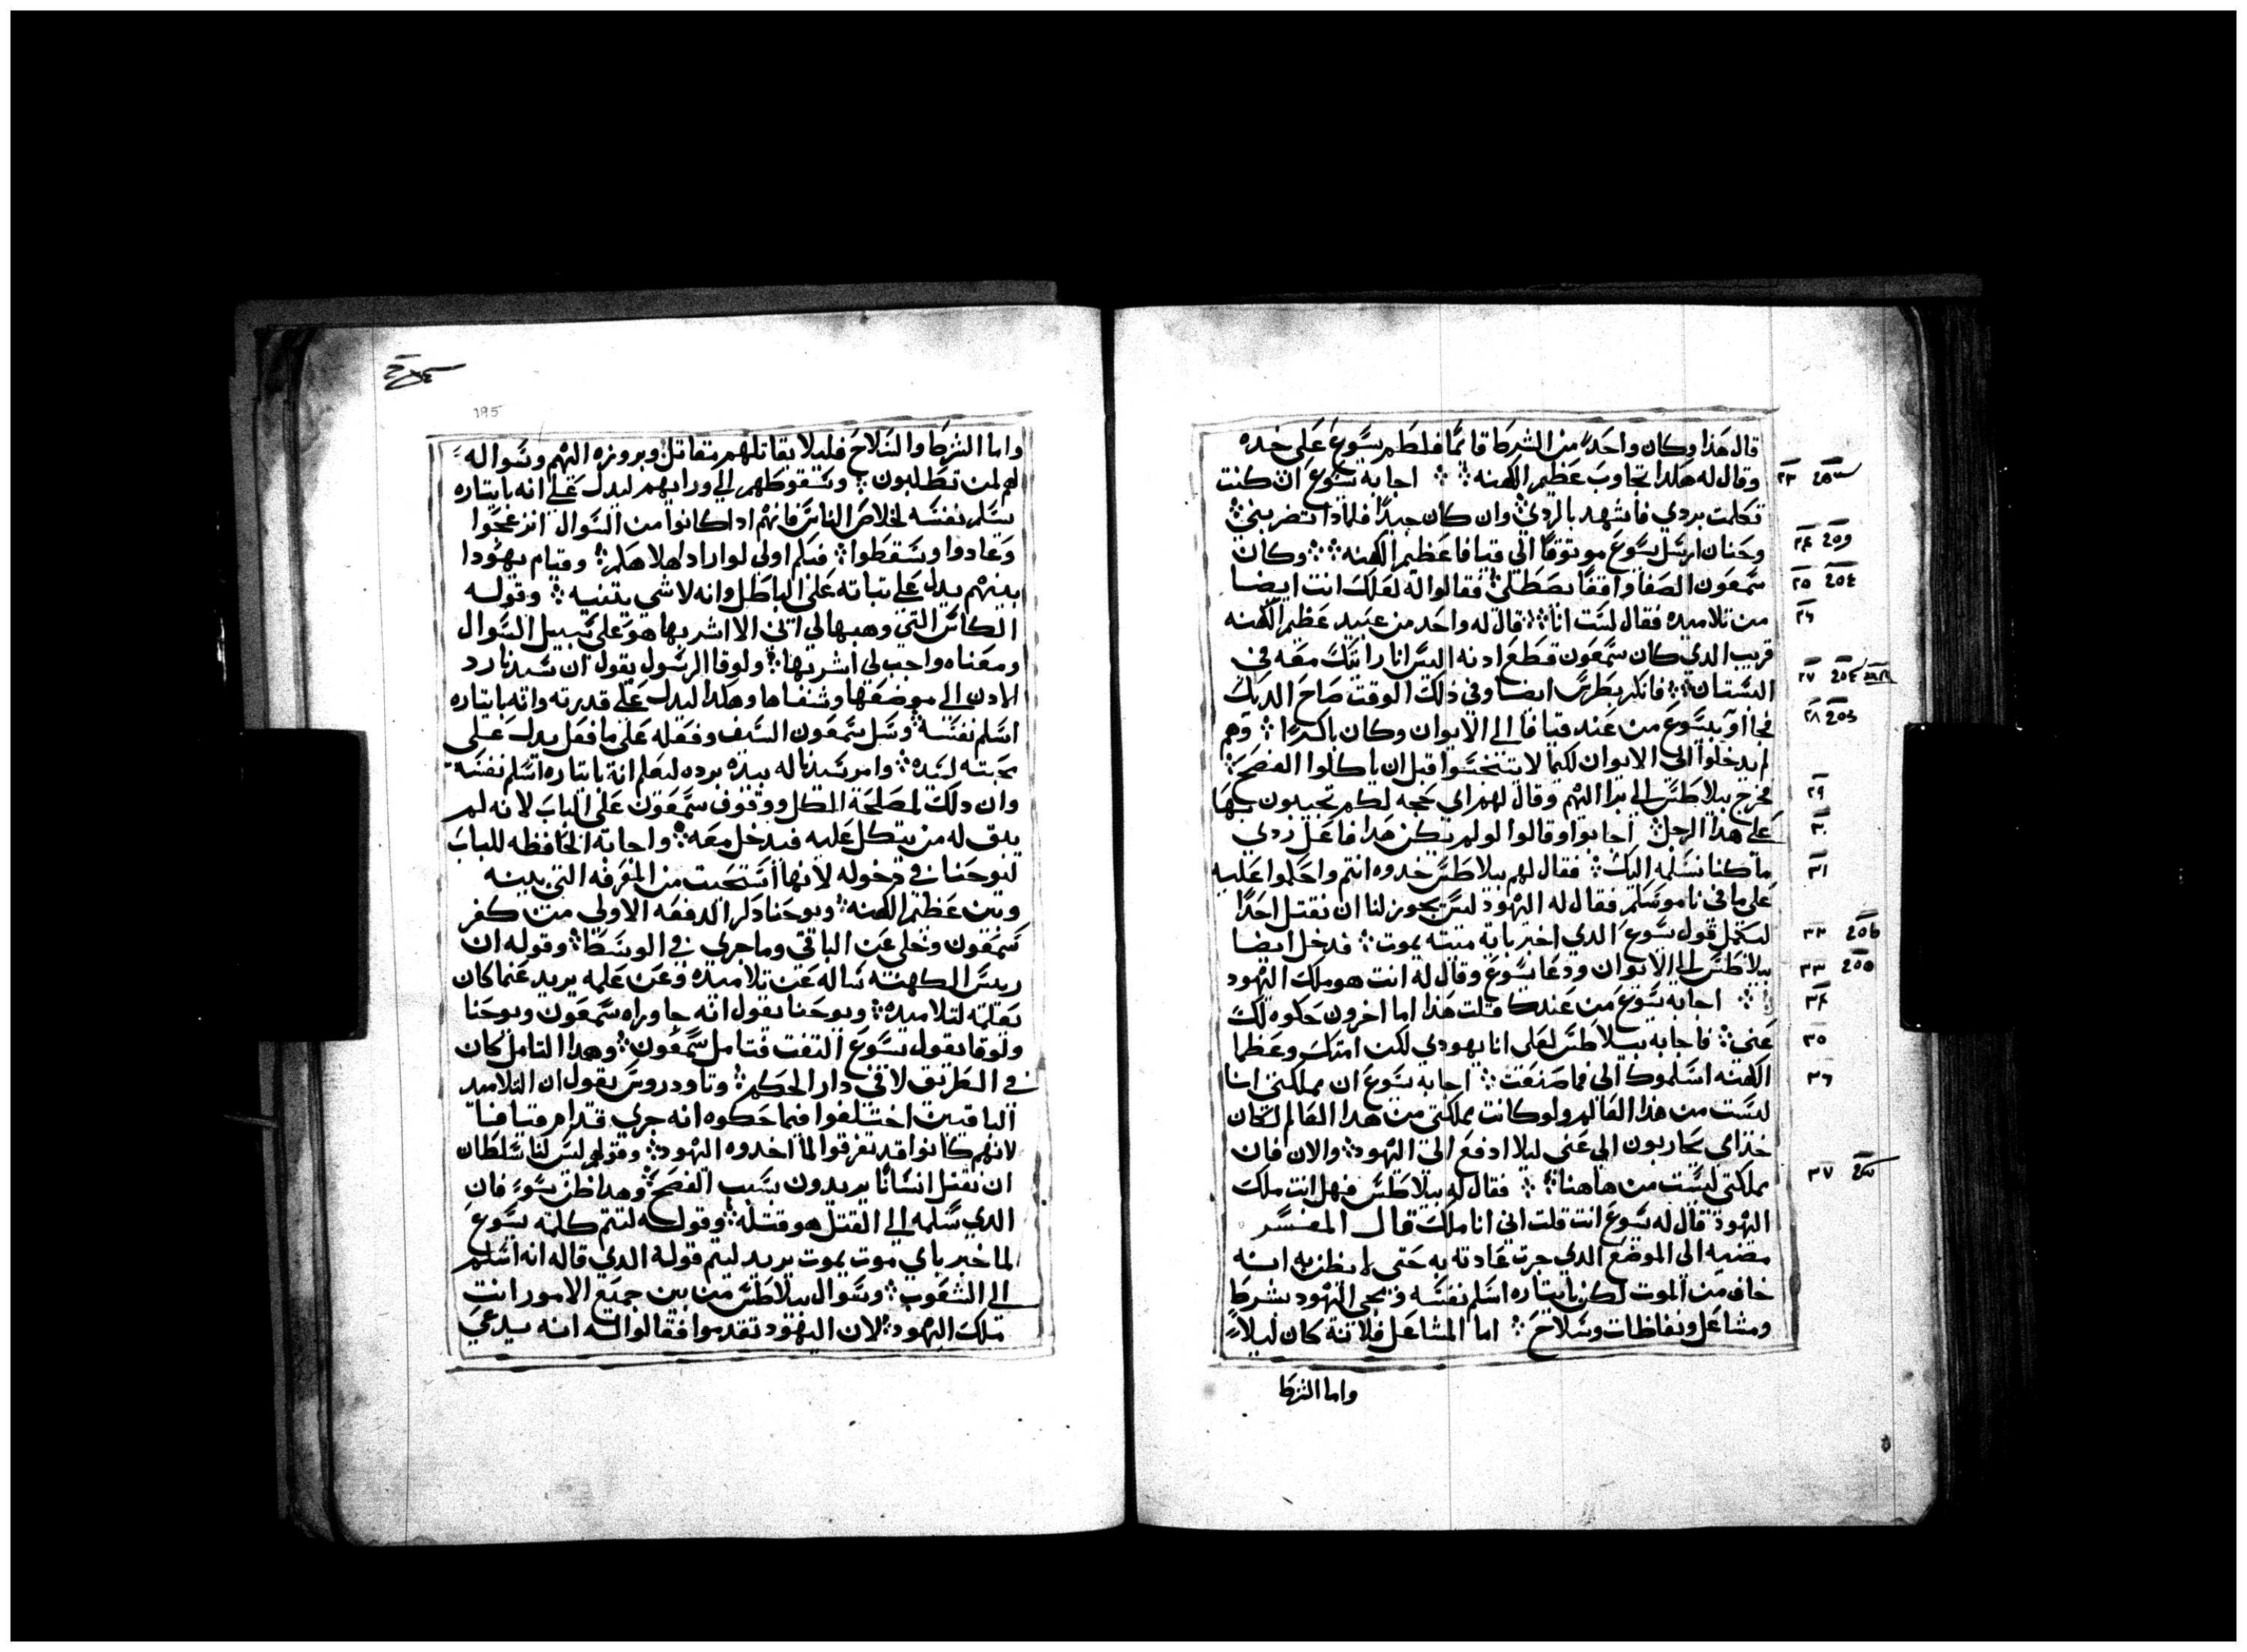 قال هذا وكان واحدًا من الشرط قائمًا فلطم يسوع على خده
وقال له هكدا تجاوب عظيم الكهنه ⁘ ⁘ اجابه يسوع ان كنت
تكلمت بردي فاشهد بالردي وان كان جيدًا فلمادا تضربني ⁘
وحنان ارسل يسوع موتوقًا الي قيافا عظيم الكهنه ⁘ ⁘ وكان
سمعون الصفا واقفًا يصطلي ⁘ فقالوا له لعلك انت ايضا
من تلاميده فقال لست انا ⁘ قال له واحد من عبيد عظيم الكهنه
قريب الدي كان سمعون قطع ادنه اليس انا رايتك معه في
البستان ⁘ فانكر بطرس ايضا وفي دلك الوقت صاح الديك
فجااوا بيسوع من عند قيافا الي الايوان وكان باكرًا ⁘ وهم
لم يدخلوا الي الايوان لكيما لا يتنجسوا قبل ان ياكلوا الفصح ⁘
فخرج بيلاطس الي برا اليهم وقال لهم اي حجه لكم تجيبون بها
علي هدا الرجل ⁘ اجابوا وقالوا لو لم يكن هدا فاعل ردي
ما كنا نسلمه اليك ⁘ فقال لهم بيلاطس خدوه انتم واحكموا عليه
علي ما في ناموسكم فقال له اليهود ليس يجوز لنا ان نقتل احدًا
ليكمل قول يسوع الدي اخبر باية ميته يموت ⁘ فدخل ايضا
بيلاطس الي الايوان ودعا يسوع وقال له انت هو ملك اليهود
⁘ اجابه يسوع من عندك قلت هدا اما اخرون حكوه لك
عني ⁘ فاجابه بيلاطس لعلي انا يهودي لكن امتك وعظما
الكهنه اسلموك الي فما صنعت ⁘ اجابه يسوع ان مملكتي انا
ليست من هدا العالم ولو كانت مملكتي من هدا العالم لكان
خدامي يحاربون عني ليلا ادفع الي اليهود ⁘ والان فان
مملكتي ليست من هاهنا ⁘ ⁘ فقال له بيلاطس فهل انت ملك
اليهود قال له يسوع انت قلت اني انا ملك قال المفسر
مضيه الي الموضع الدي جرت عادته به حتي لا يظن به انه
خاف من الموت لكن بايتاره اسلم نفسه ومجي اليهود بشرط
ومشاعل ونفاطات وسلاح ⁘ اما المشاعل فلانه كان ليلاً
واما الشرط
٢٣
٢٤
٢٥
٢٦
٢٧
٢٨
٢٩
٣٠
٣١
٣٢
٣٣
٣٤
٣٥
٣٦
٣٧
195
واما الشرط والسلاح فليلا يقاتلهم مقاتل وبروزه اليهم وسواله
لهم لمن تطلبون ⁘ وسقوطهم الي ورايهم ليدل علي انه بايتاره
يسلم نفسه لخلاص الناس فانهم ادا كانوا من السوال انزعجوا
وعادوا وسقطوا ⁘ فبكم اولي لو اراد اهلاكهم ⁘ وقيام يهودا
بينهم يدل علي تباته علي الباطل وانه لا شي يتنيه ⁘ وقوله
الكاس التي وهبها لي ابي الا اشربها هو علي سبيل السوال
ومعناه واجب لي اشربها ⁘ ولوقا الرسول يقول ان سيدنا رد
الادن الي موضعها وشفاها وهكدا ليدل علي قدرته وانه بايتاره
اسلم نفسه ⁘ وسل سمعون السيف وفعله علي ما فعل يدل علي
محبته لسيده ⁘ وامر سيدنا له برده ليعلم انه بايتاره اسلم نفسه
وان دلك لمصلحة الكل ووقوف سمعون علي الباب لانه لم
يدق له من يتكل عليه فيدخل معه ⁘ واجابة الحافظه للباب
ليوحنا في دخوله لانها استحيت من المعرفه التي بينه
وبين عظيم الكهنه ⁘ ويوحنا دكر الدفعه الاولي من كفر
سمعون وخلي عن الباقي وما جري في الوسط ⁘ وقوله ان
ريس الكهنه ساله عن تلاميده وعن علمه يريد عنما كان
يعلمه لتلاميده ⁘ ويوحنا يقول انه جا وراه سمعون ويوحنا
ولوقا يقول يسوع التفت فتامل سمعون ⁘ وهدا التامل كان
في الطريق لا في دار الحكم ⁘ وتاودروس يقول ان التلاميد
الباقيين اختلفوا فيما حكوه انه جري قدام قيافا
لانهم كانوا قد تفرقوا لما اخدوه اليهود ⁘ وقولهم ليس لنا سلطان
ان نقتل انسانًا يريدون بسبب الفصح ⁘ وهدا ظن سوء فان
الدي سلمه الي القتل هو قتله ⁘ وقوله لتتم كلمة يسوع
لما خبر باي موت يموت يريد ليتم قوله الدي قاله انه اسلم
الي الشعوب ⁘ وسوال بيلاطس من بين جميع الامور انت
ملك اليهود ⁘ لان اليهود تقدموا فقالوا له انه يدعي